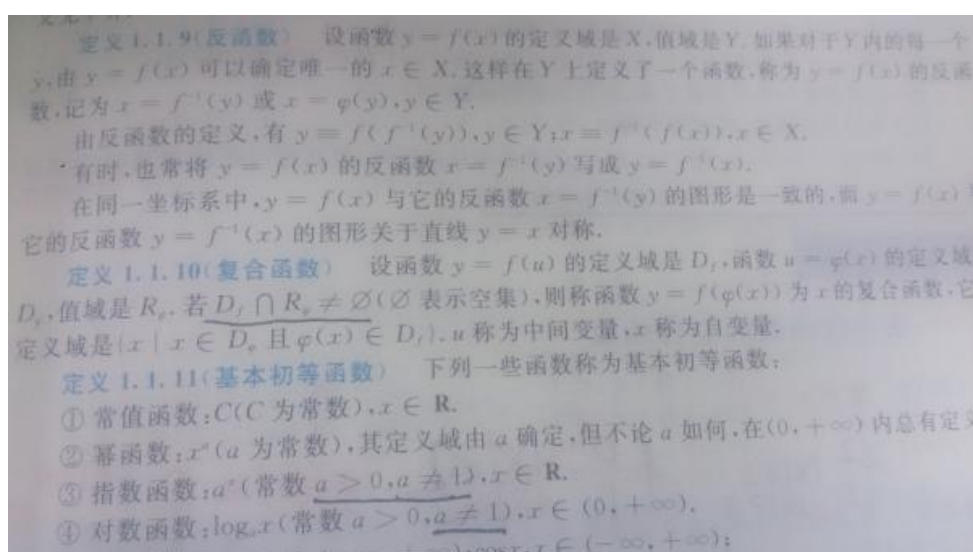 定义 1.1.9(反函数) 设函数 y = f(x) 的定义域是 X,值域是 Y. 如果对于 Y 内的每一个
y,由 y = f(x) 可以确定唯一的 x ∈ X. 这样在 Y 上定义了一个函数,称为 y = f(x) 的反函
数,记为 x = f⁻¹(y) 或 x = φ(y),y ∈ Y.
由反函数的定义,有 y ≡ f(f⁻¹(y)),y ∈ Y;x ≡ f⁻¹(f(x)),x ∈ X.
有时,也常将 y = f(x) 的反函数 x = f⁻¹(y) 写成 y = f⁻¹(x).
在同一坐标系中,y = f(x) 与它的反函数 x = f⁻¹(y) 的图形是一致的,而 y = f(x)
它的反函数 y = f⁻¹(x) 的图形关于直线 y = x 对称.
定义 1.1.10(复合函数) 设函数 y = f(u) 的定义域是 D_f,函数 u = φ(x) 的定义域
D_φ,值域是 R_φ. 若 D_f ⋂ R_φ ≠ ∅(∅ 表示空集),则称函数 y = f(φ(x)) 为 x 的复合函数,它
定义域是{x | x ∈ D_φ 且 φ(x) ∈ D_f}. u 称为中间变量,x 称为自变量.
定义 1.1.11(基本初等函数) 下列一些函数称为基本初等函数:
① 常值函数:C(C 为常数),x ∈ R.
② 幂函数:xᵃ(a 为常数),其定义域由 a 确定,但不论 a 如何,在(0,+∞) 内总有定义
③ 指数函数:aˣ(常数 a > 0,a ≠ 1),x ∈ R.
④ 对数函数:logₐx(常数 a > 0,a ≠ 1),x ∈ (0,+∞).
cosx,x ∈ (−∞,+∞);